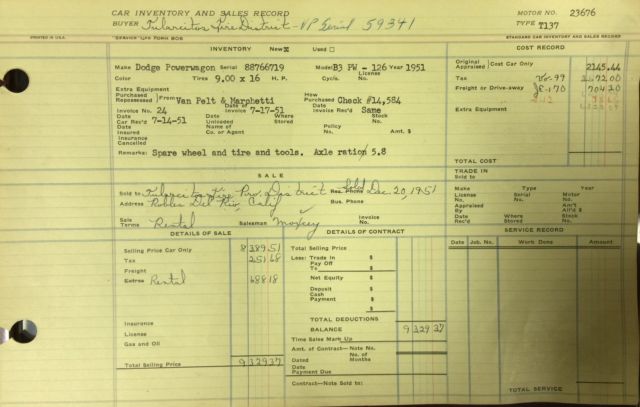 CAR INVENTORY AND SALES RECORD
MOTOR NO. 23676
BUYER Tularcitos Fire District - VP Serial 59341
TYPE T137
PRINTED IN U.S.A.
STANDARD CAR INVENTORY AND SALES RECORD
INVENTORY New ☒ Used ☐
COST RECORD
Make Dodge Powerwagon Serial 88766719 Model B3 PW - 126 Year 1951
Original Appraised Cost Car Only 2145.44
Color Tires 9.00 x 16 H. P. Cyls. License No.
Tax
Extra Equipment
Freight or Drive-away
Purchased Repossessed From Van Pelt & Marchetti How Purchased Check #14,584
Extra Equipment
Invoice No. 24 Date of Invoice 7-17-51 Date Inv. Rec'd Same
Date Car Rec'd 7-14-51 Date Unloaded Where Stored Stock No.
Date Insured Name of Co. or Agent Policy No. Amt. $
Insurance Cancelled
Remarks: Spare wheel and tire and tools. Axle ratio 5.8
TOTAL COST
SALE
TRADE IN
Sold to Tularcitos Fire Dec. 20, 1951
Res. Phone
Sold to
Address Calif Bus. Phone
Make Type Year
License No. Serial No. Motor No.
Sale Terms Rental Salesman Invoice No.
Appraised By Am't All'd $
Date Rec'd Where Stored Stock No.
DETAILS OF SALE
DETAILS OF CONTRACT
SERVICE RECORD
Date Job. No. Work Done Amount
Selling Price Car Only 8389.51
Total Selling Price $
Tax 251.68
Less: Trade In $
Pay Off To $
Freight
Extras Rental 688.18
Net Equity $
Deposit $
Cash Payment $
$
Insurance
TOTAL DEDUCTIONS
License
BALANCE 9329 37
Gas and Oil
Time Sales Mark Up
Amt. of Contract—Note No.
Total Selling Price 9329.37
Dated No. of Months
Date Payment Due
Contract—Note Sold to:
TOTAL SERVICE